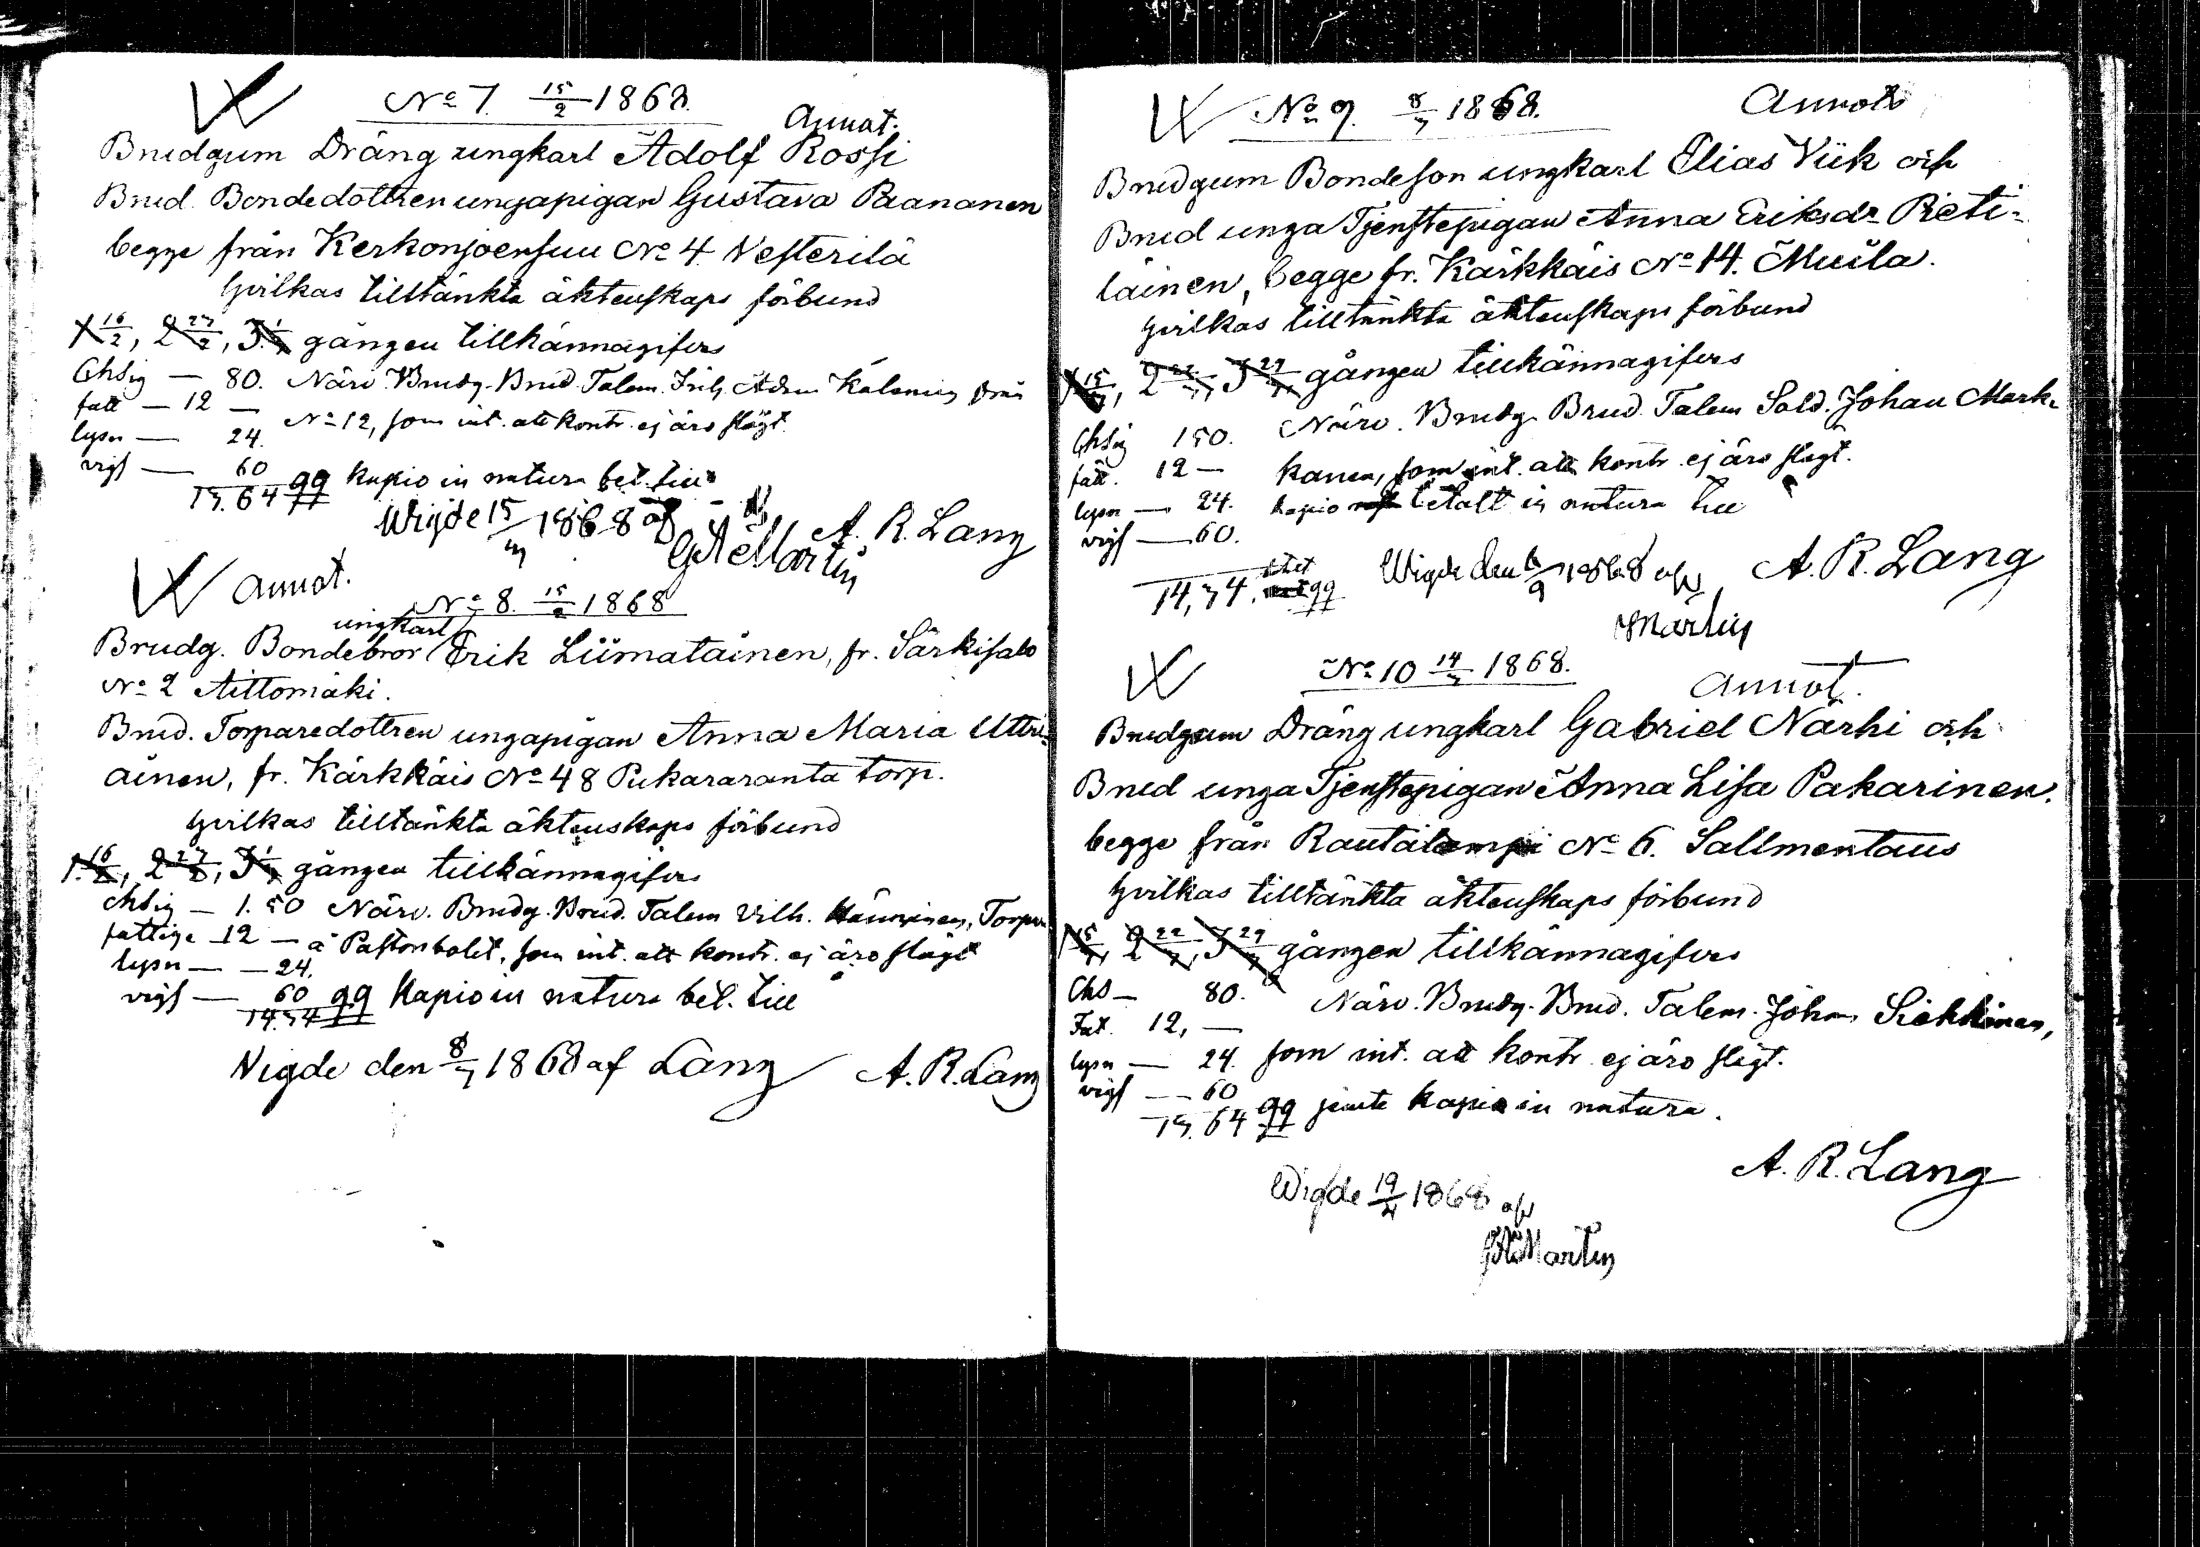 No 7. 15/2 1868.
Annot.
Brudgum Dräng ungkarl Adolf Rossi
Brud. Bondedottren ungapigan Gustava Paananen
begge från Kerkonjoensuu No 4 Vesterilä
hvilkas tilltänkta äktenskaps förbund
1 16/2, 2 23/2, 3 1/3 gången tillkännagifves
Chsig — 80. Närv. Brudg. Brud. Talem.
fatt — 12 — No 12, som int. att kontr. ej äro slägt.
lysn — 24.
vigs — 60
13.64 kapio in natura bet. till
Wigde 15/3 1868 af
G A Martin
A. R. Lang
Annot.
No 8. 15/2 1868
ungkarl
Brudg. Bondebror Erik Liimatainen, fr. Särkisalo
No 2 Aittomäki.
Brud. Torparedottren ungapigan Anna Maria Uttri-
ainen, fr. Kärkkäis No 48 Pukararanta torp.
hvilkas tilltänkta äktenskaps förbund
1. 16/2, 2 23/2, 3 1/3 gången tillkännagifves
Chsig — 1.50 Närv. Brudg. Brud. Talem Vilh. Hänninen, Torpar
fattige — 12 — å Pastorsbolet, som int. att kontr. ej äro slägt
lysn — — 24.
vigs — 60 Kapio in natura bet. till
14.34
Vigde den 8/3 1868 af Lang
A. R. Lang
No 9. 8/3 1868.
Annot.
Brudgum Bondeson ungkarl Elias Viik och
Brud unga Tjenstepigan Anna Eriksdr Pieti-
läinen, begge fr. Kärkkäis No 14. Muila.
hvilkas tilltänkta äktenskaps förbund
1 15/3, 2 22/3, 3 29/3 gången tillkännagifves
Chsig 150. Närv. Brudg. Brud. Talem Sold. Johan Mark-
fatt. 12 — kanen, som int. att kontr. ej äro slägt.
lysn — 24. kapio betalt in natura till
vigs — 60.
14,34.
Wigde den 6/9 1868 af
Martin
A. R. Lang
No 10 14/3 1868.
Annot.
Brudgum Dräng ungkarl Gabriel Närhi och
Brud unga Tjenstepigan Anna Lisa Pakarinen.
begge från Rautalampi No 6. Sallmentaus
hvilkas tilltänkta äktenskaps förbund
1 15/3, 2 22/3, 3 29/3 gången tillkännagifves
Chs — 80. Närv. Brudg. Brud. Talem. Johan Sickkinen,
Fat. 12, —
lysn — 24. som int. att kontr. ej äro slägt.
vigs — — 60
13.64 jemte kapio in natura.
A. R. Lang
Wigde 19/4 1868 af
G A Martin